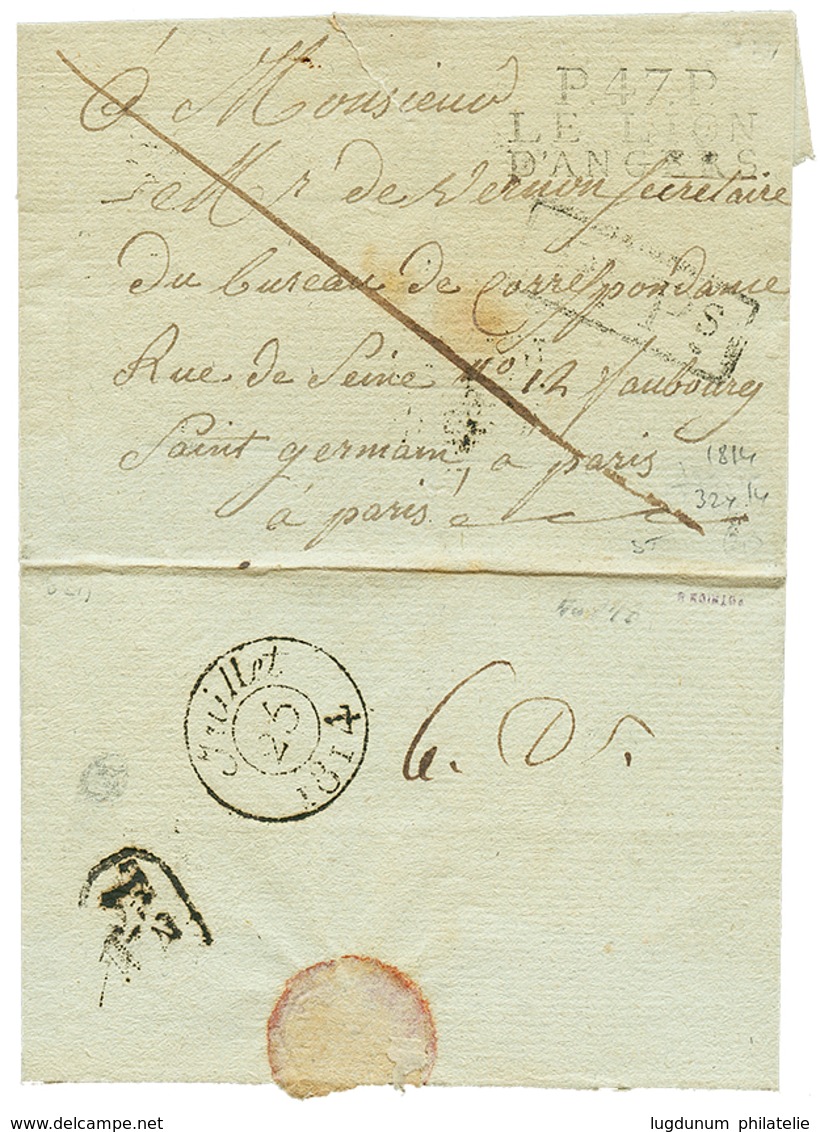 à Monsieur
P.47.P.
LE LION
D'ANGERS
Mr de Vernon Secretaire
du bureau de Correspondance
P.s
Rue de Seine No 12 faubourg
Saint germain, a paris
à paris
1814
Juillet
25
1814
6. D
lugdunum philatelie
www.delcampe.net